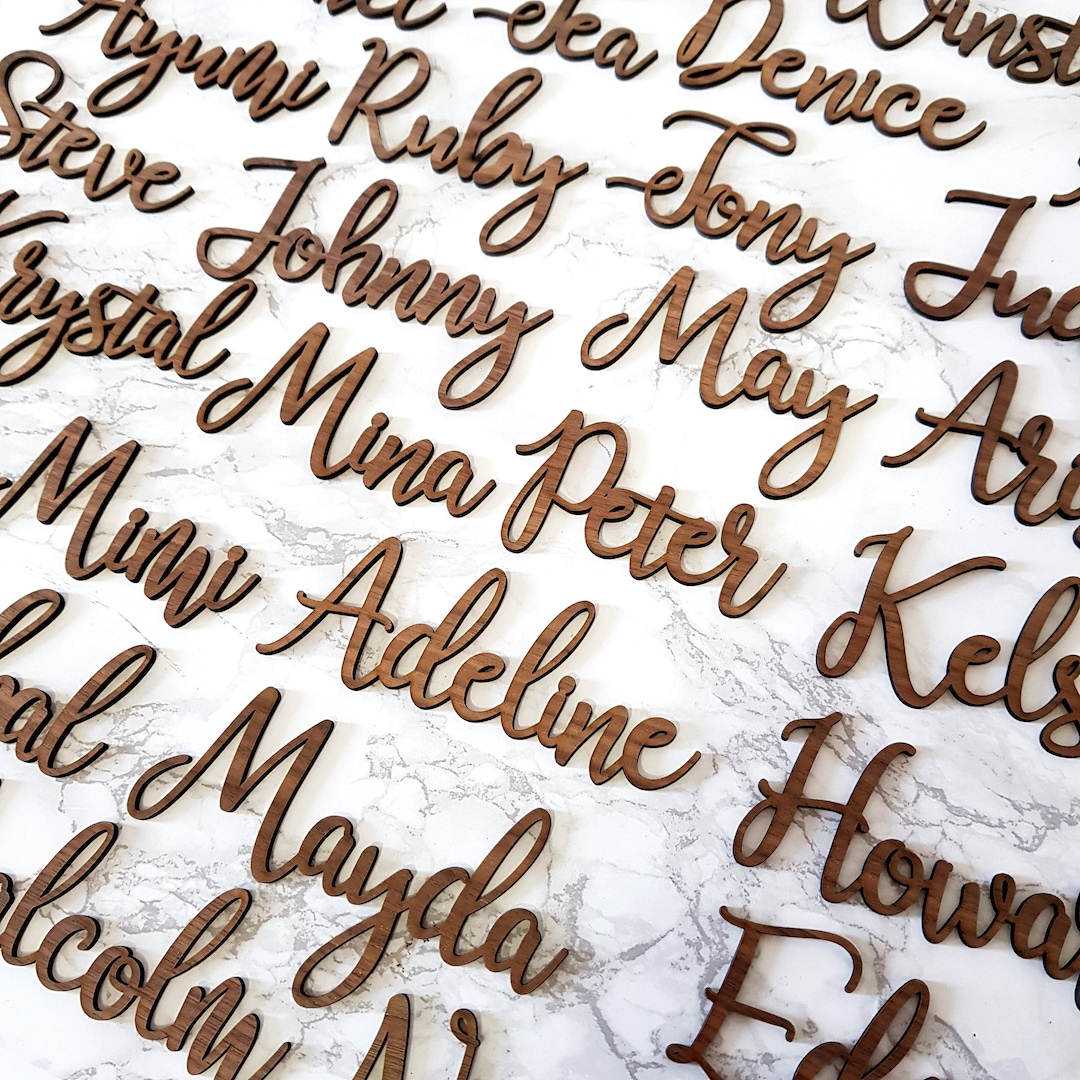 Ayumi
Tea
Denice
Winst
Steve
Ruby
Tony
Johnny
May
Krystal
Mina
Peter
Ari
Mimi
Adeline
Kels
Mayda
Howa
lcolm
Ed